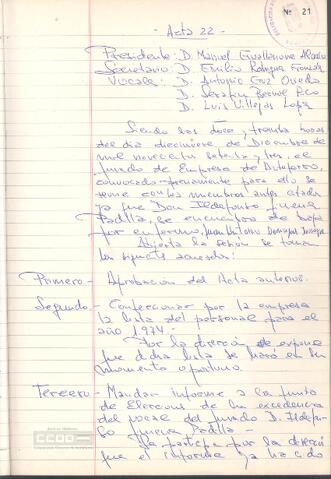 Nº 21
- Acta 22 -
Presidente: D. Manuel
Secretario: D. Emilio Rodriguez
Vocales: D. Antonio Cruz
D. Serafin Bernal Pico
D. Luis Villejos
Siendo las doce, treinta horas
del dia diecinueve de Diciembre de
mil novecientos setenta y tres, el
Jurado de Empresa de
convocado previamente para ello se
reune con los miembros antes citados
ya que Don Ildefonso
Padilla, se encuentra de baja
por enfermo, Juan Antonio
Abierta la sesión se toman
los siguientes acuerdos:
Primero.- Aprobacion del Acta anterior.
Segundo.- Confeccionar por la empresa
la lista del personal para el
año 1974.-
Por la dirección se expone
que dicha lista se hará en su
momento oportuno.
Tercero.- Mandar informe a la junta
de Elecciones de la excedencia
del vocal del jurado D. Ildefon-
so Padilla.-
Se participa por la dirección
que el informe ya ha sido
CCOO